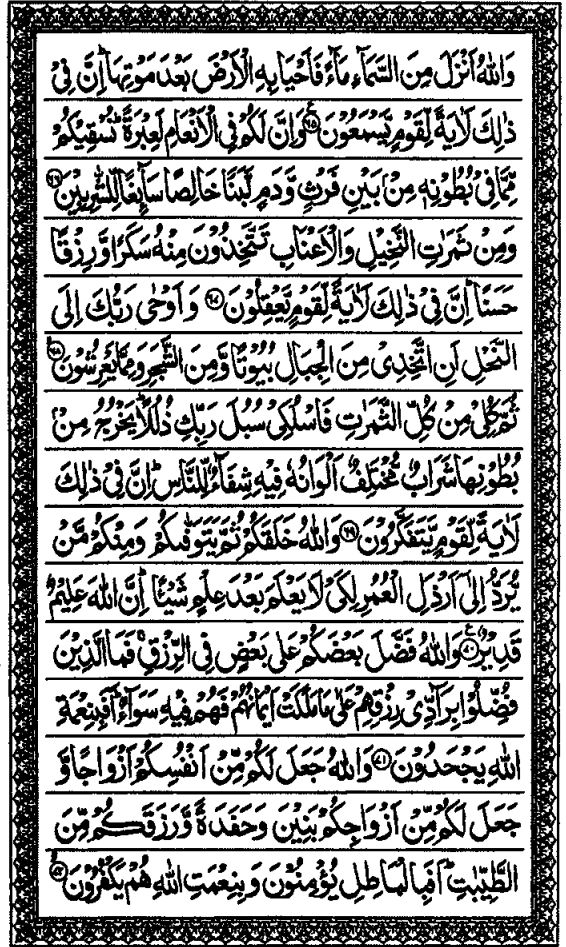 وَاللّٰهُ اَنْزَلَ مِنَ السَّمَآءِ مَآءً فَاَحْيَا بِهِ الْاَرْضَ بَعْدَ مَوْتِهَا ؕ اِنَّ فِيْ
ذٰلِكَ لَاٰيَةً لِّقَوْمٍ يَّسْمَعُوْنَ ۠﴿۶۵﴾ وَاِنَّ لَكُمْ فِي الْاَنْعَامِ لَعِبْرَةً ؕ نُسْقِيْكُمْ
مِّمَّا فِيْ بُطُوْنِهٖ مِنْۢ بَيْنِ فَرْثٍ وَّدَمٍ لَّبَنًا خَالِصًا سَآئِغًا لِّلشّٰرِبِيْنَ ﴿۶۶﴾
وَمِنْ ثَمَرٰتِ النَّخِيْلِ وَالْاَعْنَابِ تَتَّخِذُوْنَ مِنْهُ سَكَرًا وَّرِزْقًا
حَسَنًا ؕ اِنَّ فِيْ ذٰلِكَ لَاٰيَةً لِّقَوْمٍ يَّعْقِلُوْنَ ﴿۶۷﴾ وَاَوْحٰى رَبُّكَ اِلَى
النَّحْلِ اَنِ اتَّخِذِيْ مِنَ الْجِبَالِ بُيُوْتًا وَّمِنَ الشَّجَرِ وَمِمَّا يَعْرِشُوْنَ ﴿۶۸﴾
ثُمَّ كُلِيْ مِنْ كُلِّ الثَّمَرٰتِ فَاسْلُكِيْ سُبُلَ رَبِّكِ ذُلُلًا ؕ يَخْرُجُ مِنْۢ
بُطُوْنِهَا شَرَابٌ مُّخْتَلِفٌ اَلْوَانُهٗ فِيْهِ شِفَآءٌ لِّلنَّاسِ ؕ اِنَّ فِيْ ذٰلِكَ
لَاٰيَةً لِّقَوْمٍ يَّتَفَكَّرُوْنَ ﴿۶۹﴾ وَاللّٰهُ خَلَقَكُمْ ثُمَّ يَتَوَفّٰىكُمْ وَمِنْكُمْ مَّنْ
يُّرَدُّ اِلٰٓى اَرْذَلِ الْعُمُرِ لِكَيْ لَا يَعْلَمَ بَعْدَ عِلْمٍ شَيْئًا ؕ اِنَّ اللّٰهَ عَلِيْمٌ
قَدِيْرٌ ۠﴿۷۰﴾ وَاللّٰهُ فَضَّلَ بَعْضَكُمْ عَلٰى بَعْضٍ فِي الرِّزْقِ ۚ فَمَا الَّذِيْنَ
فُضِّلُوْا بِرَآدِّيْ رِزْقِهِمْ عَلٰى مَا مَلَكَتْ اَيْمَانُهُمْ فَهُمْ فِيْهِ سَوَآءٌ ؕ اَفَبِنِعْمَةِ
اللّٰهِ يَجْحَدُوْنَ ﴿۷۱﴾ وَاللّٰهُ جَعَلَ لَكُمْ مِّنْ اَنْفُسِكُمْ اَزْوَاجًا وَّ
جَعَلَ لَكُمْ مِّنْ اَزْوَاجِكُمْ بَنِيْنَ وَحَفَدَةً وَّرَزَقَكُمْ مِّنَ
الطَّيِّبٰتِ ؕ اَفَبِالْبَاطِلِ يُؤْمِنُوْنَ وَبِنِعْمَتِ اللّٰهِ هُمْ يَكْفُرُوْنَ ﴿۷۲﴾